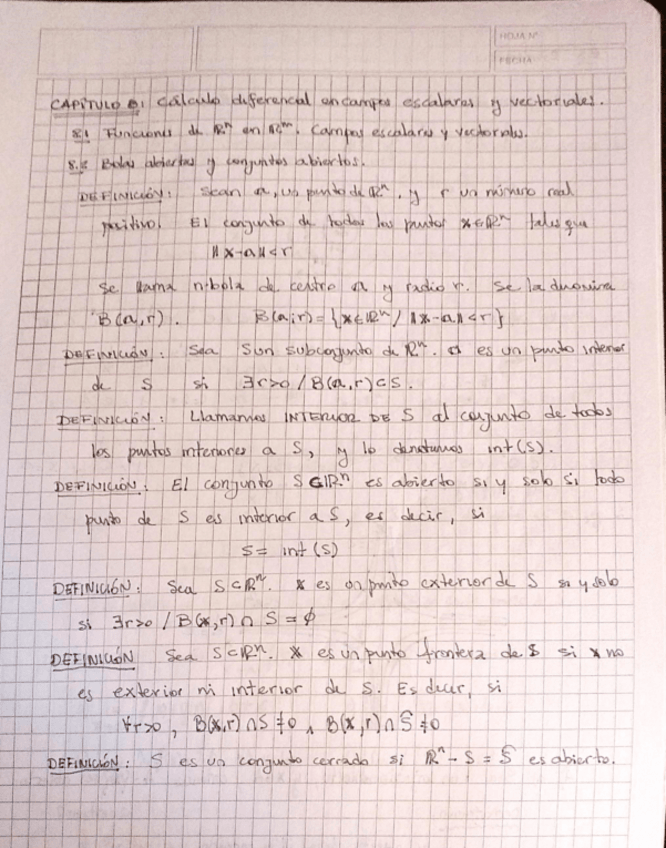 HOJA Nº
FECHA
CAPÍTULO 8: Cálculo diferencial en campos escalares y vectoriales.
8.1 Funciones de ℝⁿ en ℝᵐ. Campos escalares y vectoriales.
8.2 Bolas abiertas y conjuntos abiertos.
DEFINICIÓN: Sean a, un punto de ℝⁿ, y r un número real
positivo. El conjunto de todos los puntos x∈ℝⁿ tales que
‖x-a‖<r
se llama n-bola de centro a y radio r. Se la denomina
B(a,r). B(a;r)={x∈ℝⁿ/ ‖x-a‖<r}
DEFINICIÓN: Sea S un subconjunto de ℝⁿ. a es un punto interior
de S si ∃r>0 / B(a,r)⊂S.
DEFINICIÓN: Llamamos INTERIOR DE S al conjunto de todos
los puntos interiores a S, y lo denotamos int(S).
DEFINICIÓN: El conjunto S⊂ℝⁿ es abierto si y solo si todo
punto de S es interior a S, es decir, si
S= int(S)
DEFINICIÓN: Sea S⊂ℝⁿ. x es un punto exterior de S si y solo
si ∃r>0 / B(x,r)∩S=∅
DEFINICIÓN Sea S⊂ℝⁿ. x es un punto frontera de S si x no
es exterior ni interior de S. Es decir, si
∀r>0, B(x,r)∩S≠0 ∧ B(x,r)∩S̃≠0
DEFINICIÓN: S es un conjunto cerrado si ℝⁿ-S=S̃ es abierto.